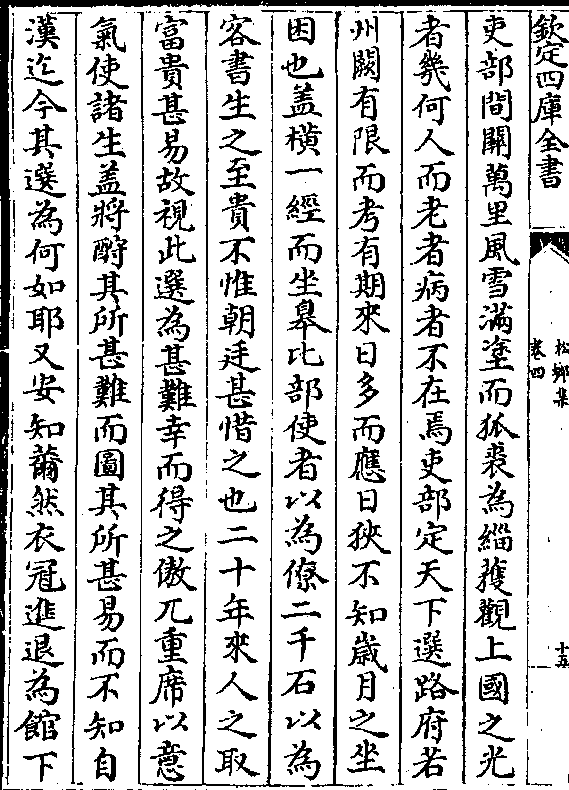 欽定四庫全書
松鄉集
卷四
十五
吏部間關萬里風雪滿塗而狐裘為緇蒦觀上國之光
者幾何人而老者病者不在焉吏部定天下選路府若
州闕有限而考有期來日多而應日狹不知歲月之坐
困也盖橫一經而坐皋比部使者以為僚二千石以為
客書生之至貴不惟朝廷甚惜之也二十年來人之取
富貴甚易故視此選為甚難幸而得之傲兀重席以意
氣使諸生盖將酧其所甚難而圖其所甚易而不知自
漢迄今其選為何如耶又安知薾然衣冠進退為館下